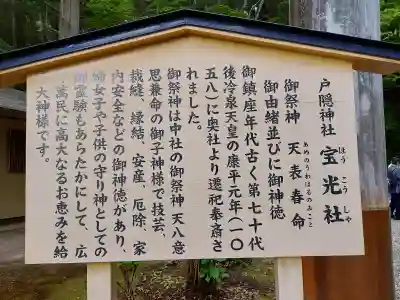 戸隠神社 宝光社
ほうこうしゃ
御祭神 天表春命
あめのうわはるのみこと
御由緒並びに御神徳
御鎮座年代古く第七十代
後冷泉天皇の康平元年(一〇
五八)に奥社より遷祀奉斎さ
れました。
御祭神は中社の御祭神 天八意
思兼命の御子神様で技芸、
裁縫、縁結、安産、厄除、家
内安全などの御神徳があり、
婦女子や子供の守り神としての
御霊験もあらたかにして、広
く萬民に高大なるお恵みを給
う大神様です。